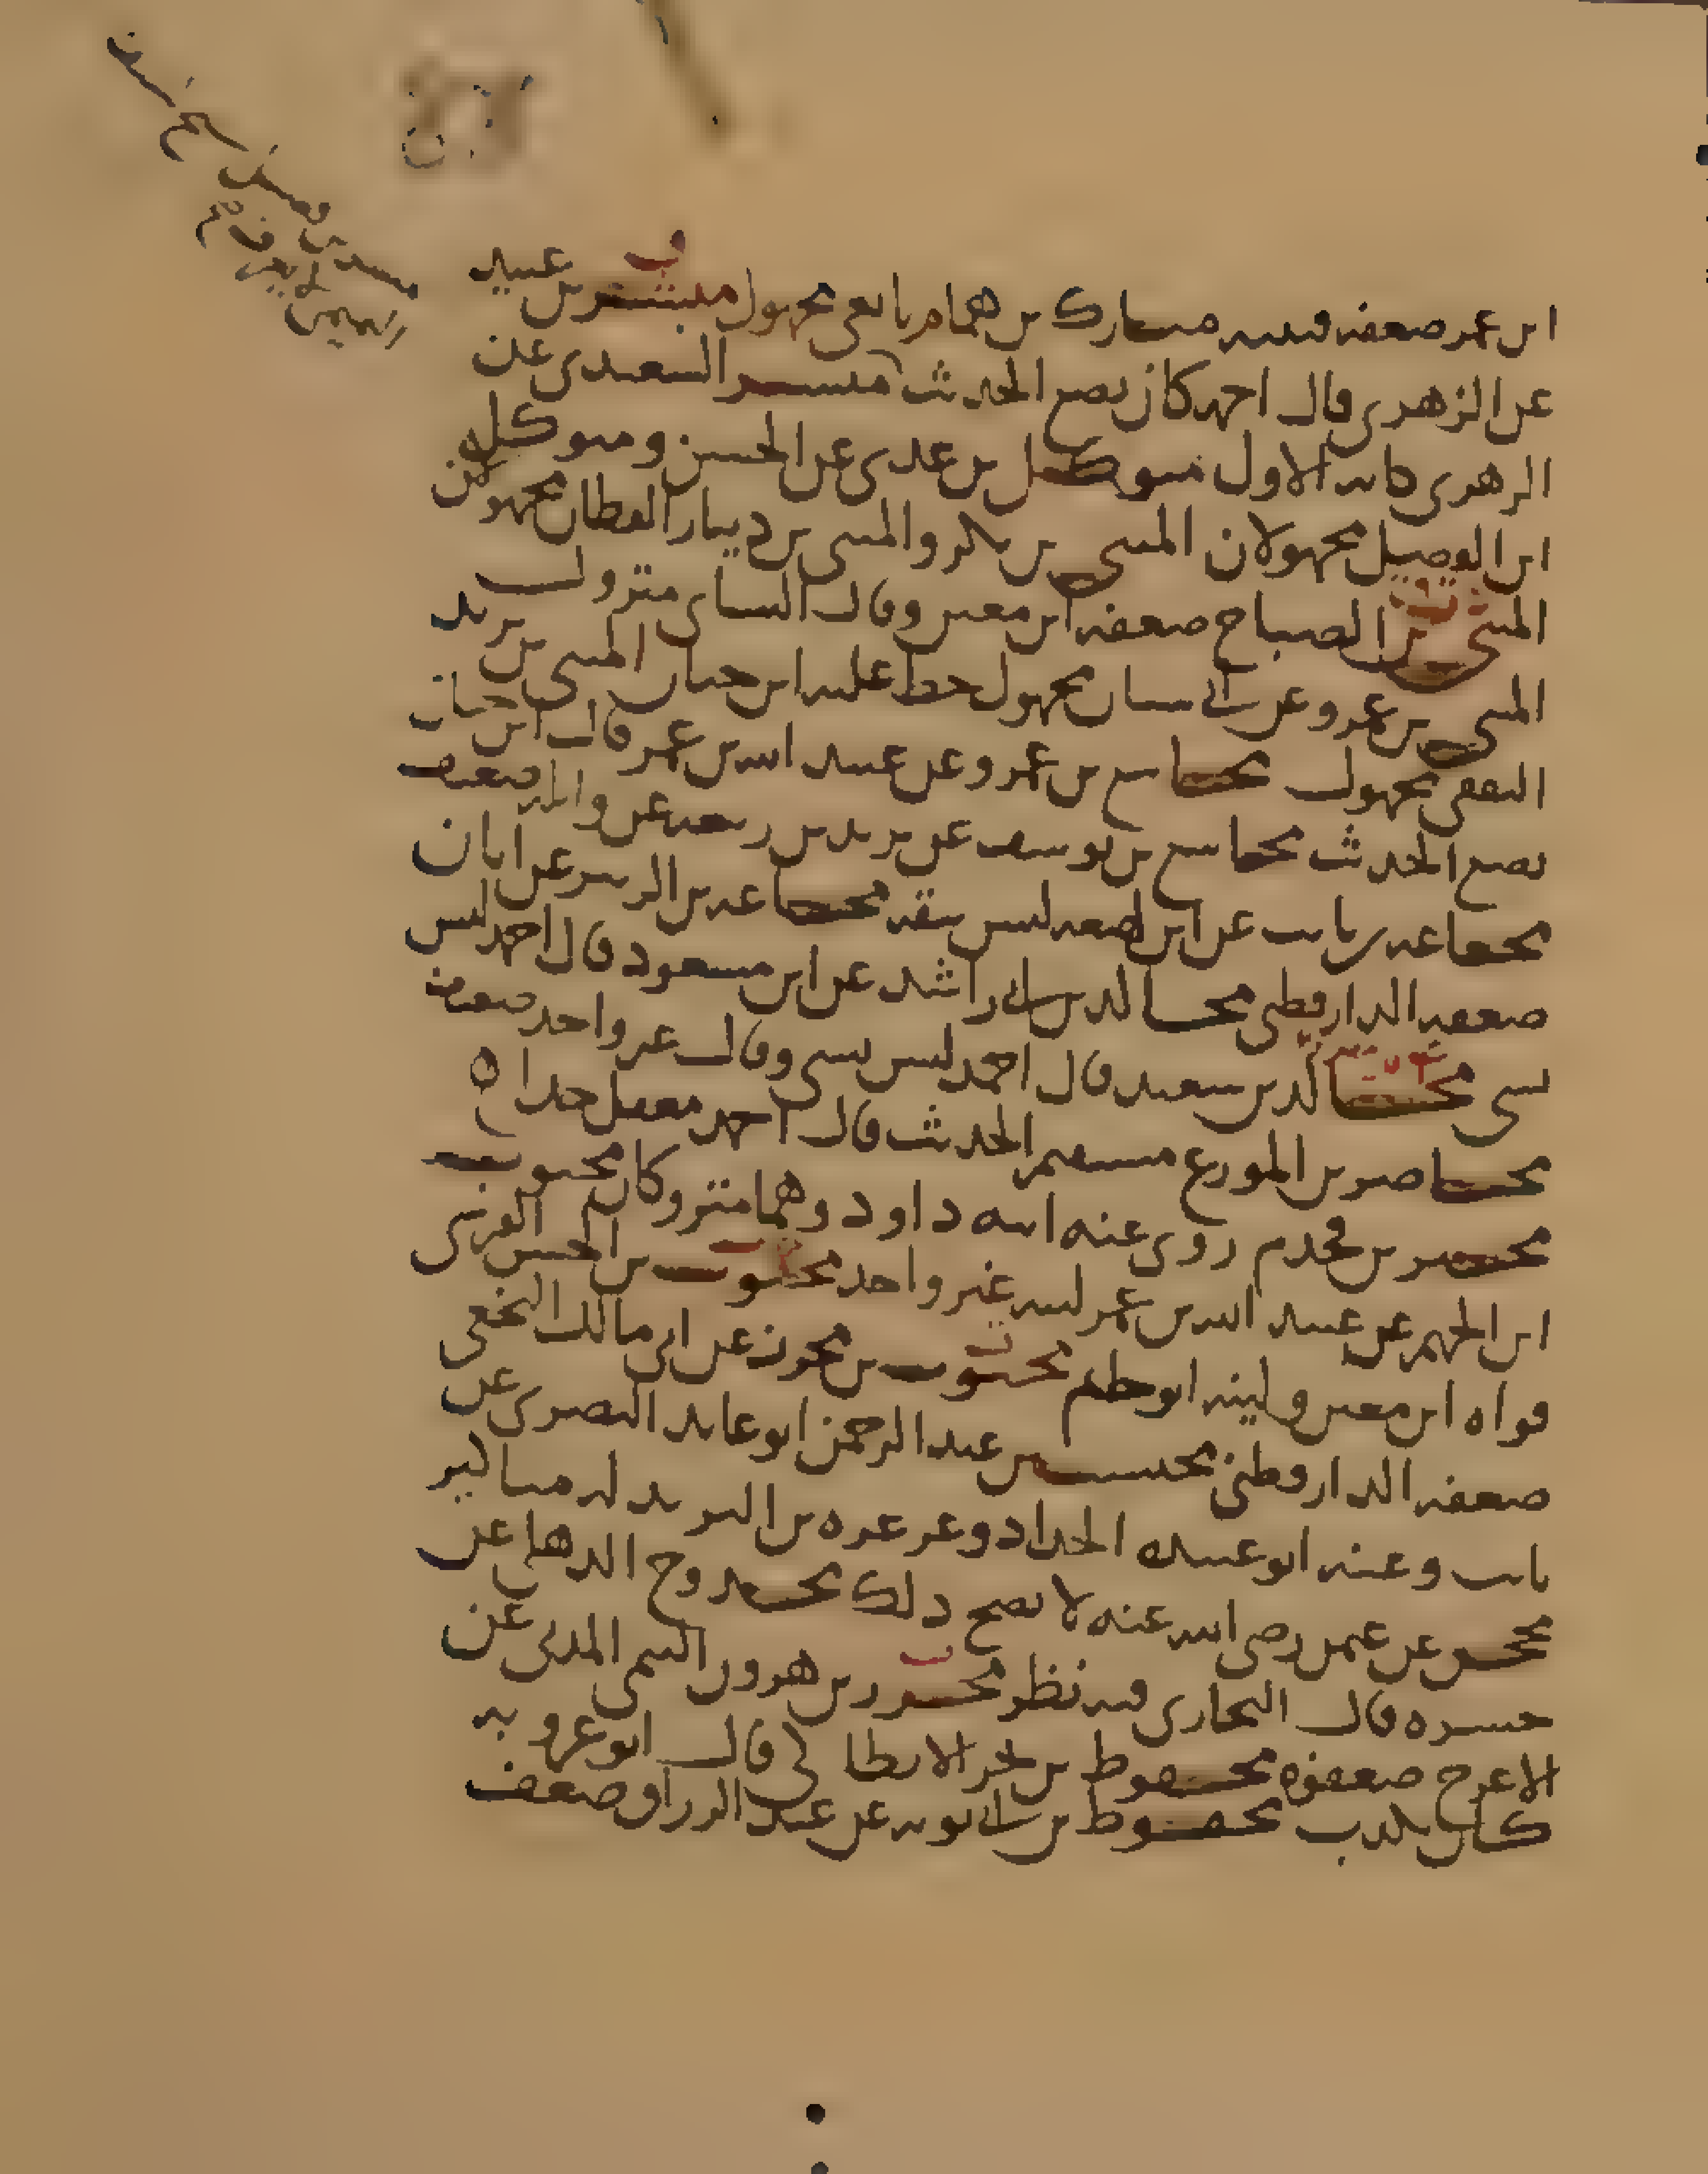 ابن عمر ضعفه قتيبه مبارك بن همام تابعي مجهول مبشر بن عبيد
عن الزهري قال احمد كان يضع الحديث مبشر السعدي عن
الزهري كانه الاول متوكل بن عدي عن الحسن ومتوكل
ابن الفضيل مجهولان المثنى بن بكر والمثنى بن دينار القطان مجهولان
المثنى بن الصباح ضعفه ابن معين وقال النسائي متروك
المثنى بن عمرو عن ابي سنان مجهول حط عليه ابن حبان المثنى بن يزيد
الثقفي مجهول مجاشع بن عمرو عن عبيد الله بن عمر قال ابن حبان
يضع الحديث مجاشع بن يوسف عن يزيد بن ربيعه عن واثله ضعيف
مجاعه بن ثابت عن ابن لهيعه ليس بثقه مجاعه بن الزبير عن ابان
ضعفه الدارقطني مجالد بن ابي راشد عن ابن مسعود قال احمد ليس
بشي مجالد بن سعيد قال احمد ليس بشي وقال غير واحد ضعيف
محاضر بن المورع مستقيم الحديث قال احمد مغفل جدا ه
محبر بن قحذم روى عنه ابنه داود وهما متروكان محبوب
ابن الجهم عن عبيد الله بن عمر لينه غير واحد محبوب بن الحسن القرشي
قواه ابن معين ولينه ابو حاتم محبوب بن محرز عن ابي مالك النخعي
ضعفه الدارقطني محتسب بن عبد الرحمن ابو عائذ البصري عن
ثابت وعنه ابو عبيده الحداد وعرعره بن البرند له مناكير
محجن عن عمر رضي الله عنه لا يصح ذلك محدوج الذهلي عن
جسره قال البخاري فيه نظر محرر بن هرون التيمي المدني عن
الاعرج ضعفوه محفوظ بن بحر الانطاكي قال ابو عروبه
كان يكذب محفوظ بن ابي توبه عن عبد الرزاق ضعف